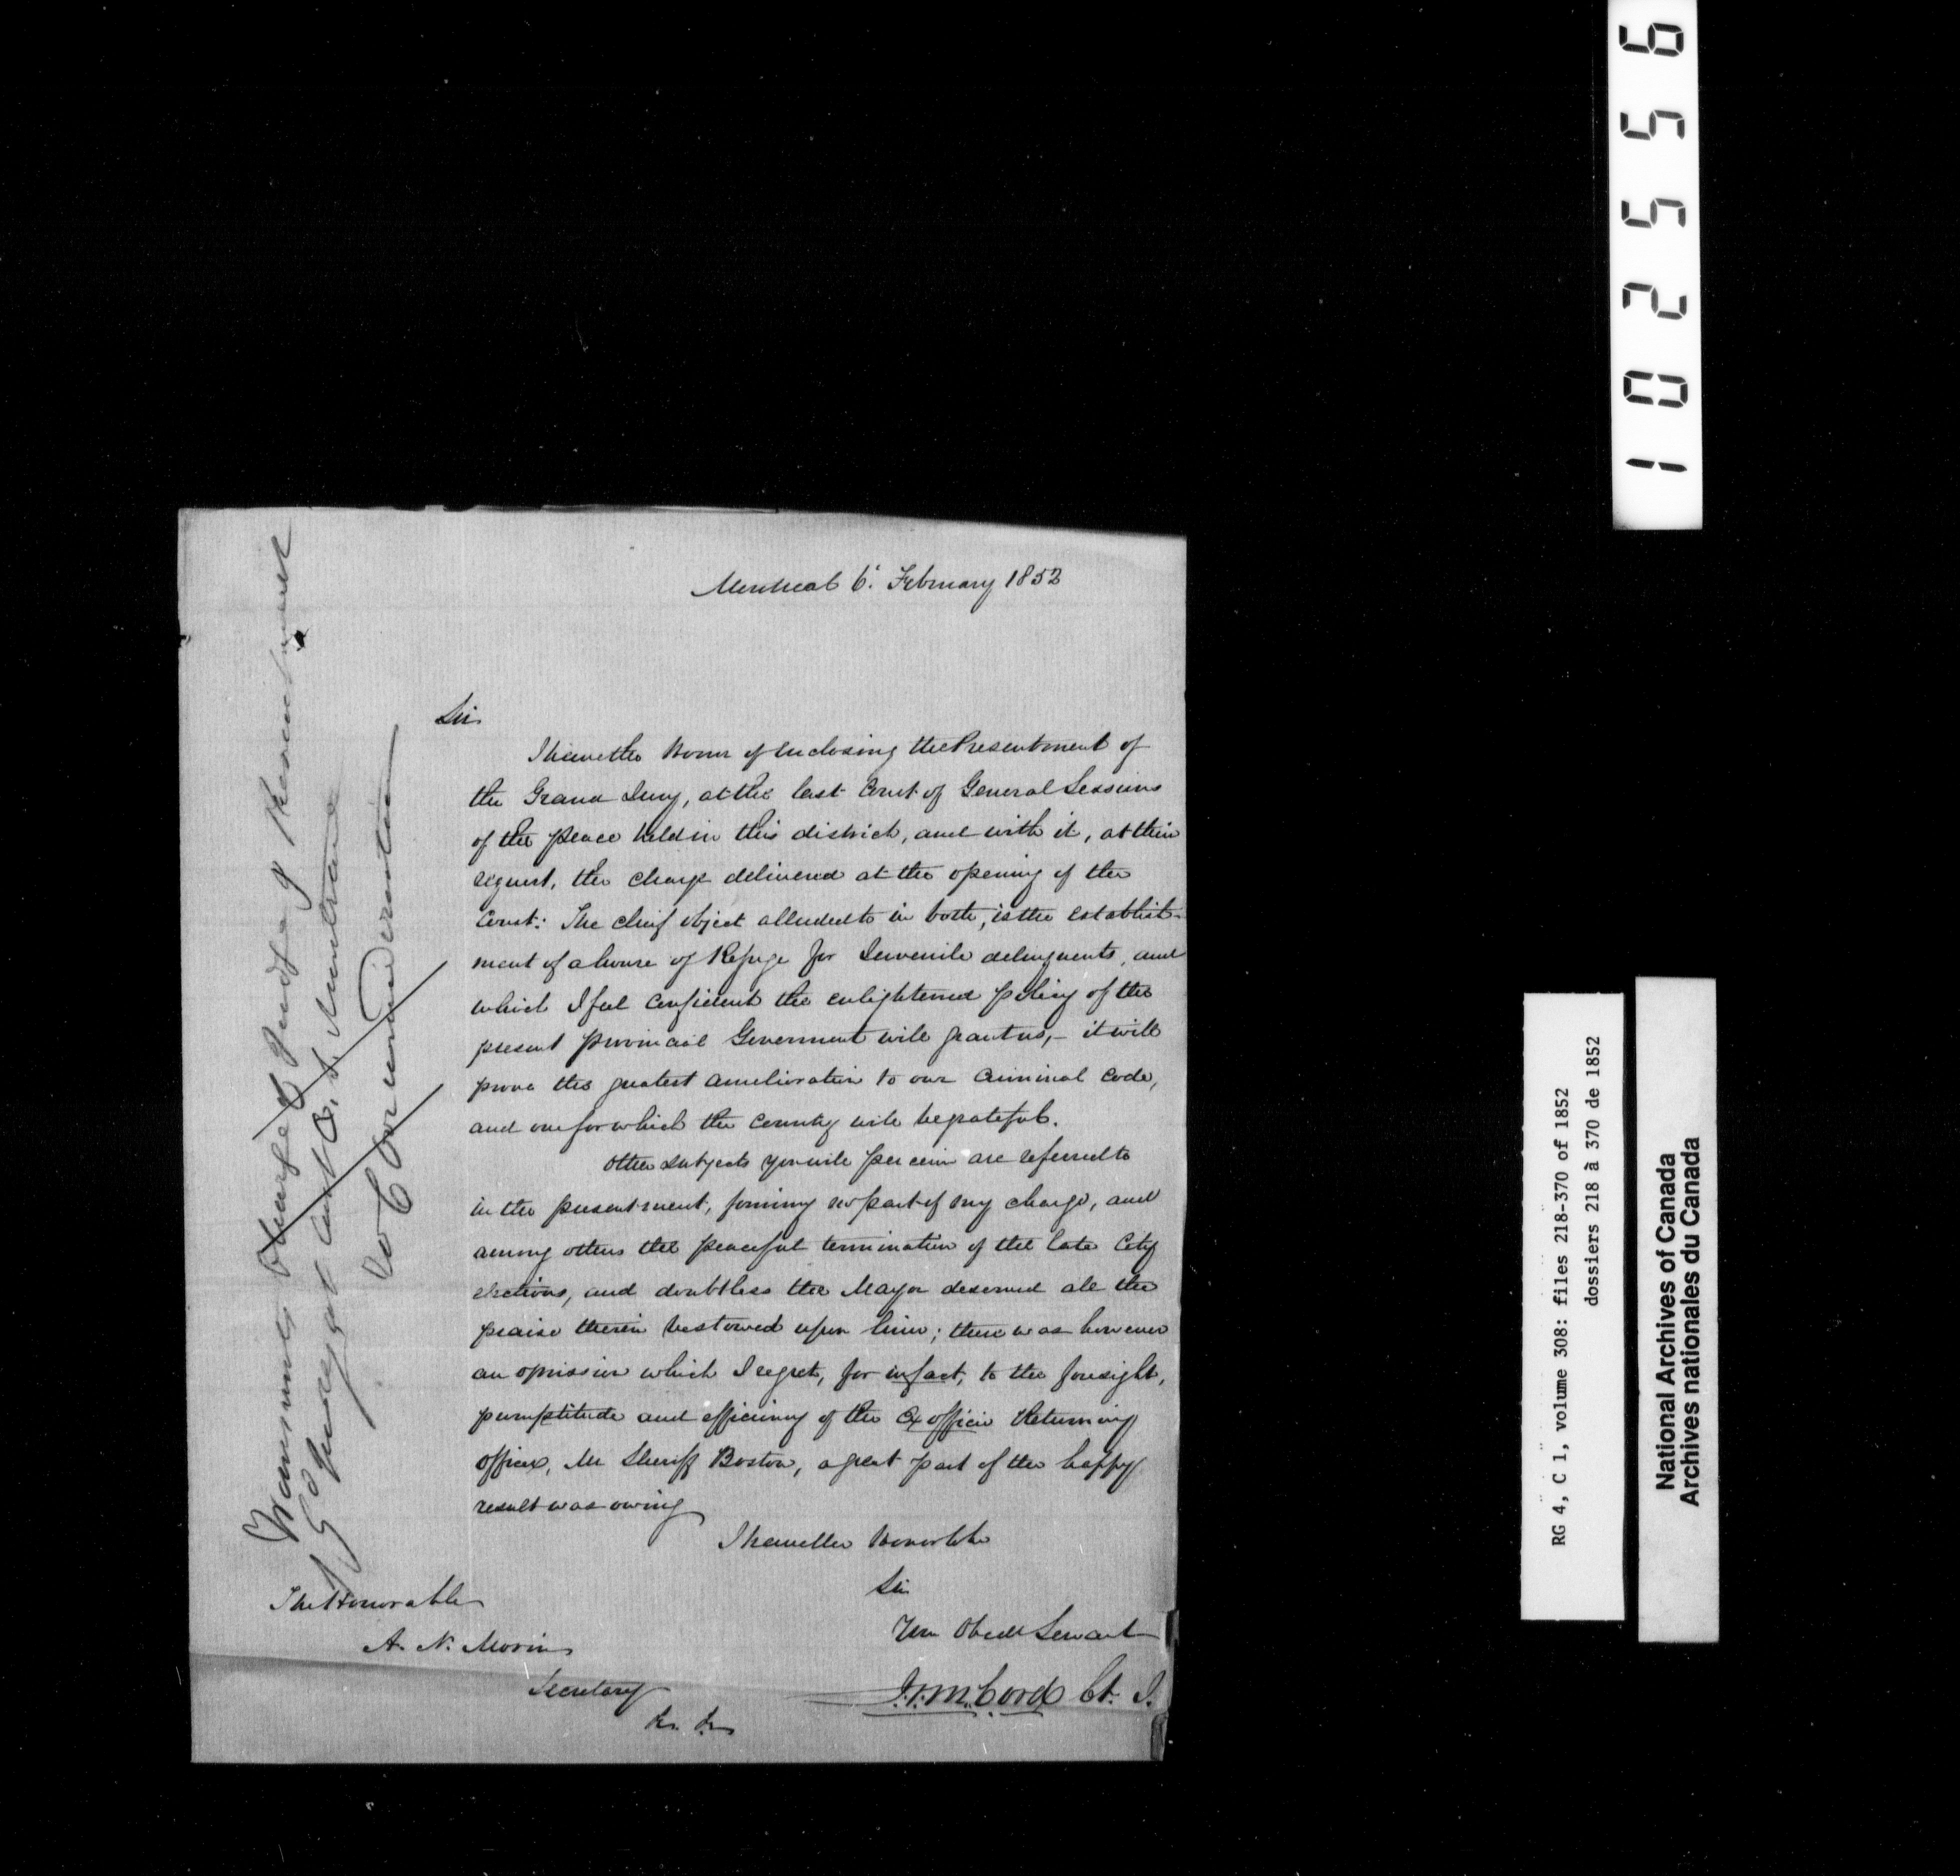 Montreal 6' February 1852
Sir
I have the honor of enclosing the Presentment of
the Grand Jury, at the last Court of General Sessions
of the peace held in this district, and with it, at their
request, the charge delivered at the opening of the
Court: The chief object alluded to in both, is the establish-
ment of a house of Refuge for Juvenile delinquents, and
which I feel confident the enlightened policy of the
present provincial Government will grant us,- it will
prove the greatest amelioration to our Criminal Code,
and one for which the Country will be grateful.
Other subjects you will perceive are referred to
in the presentment, forming no part of my charge, and
among others the peaceful termination of the late City
elections, and doubtless the Mayor deserved all the
praise therein bestowed upon him; there was however
an omission which I regret, for in fact, to the foresight,
promptitude and efficiency of the Ex officio Returning
officer, Mr Sheriff Boston, a great part of the happy
result was owing
I have the honor to be
Sir
Your Obedt Servant
The Honorable
A. N. Morin
Secretary
&c. &c.
Charge of Judge & Presentment
102556
RG 4, C 1, volume 308: files 218-370 of 1852
dossiers 218 à 370 de 1852
National Archives of Canada
Archives nationales du Canada